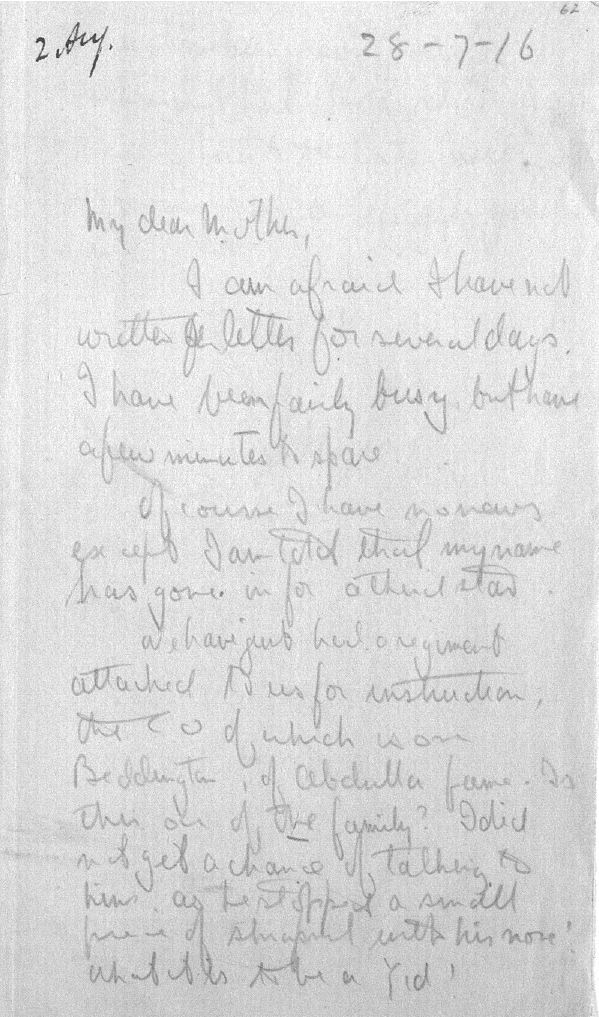 62
2 Aug.
28-7-16
My dear Mother,
I am afraid I have not
written a letter for several days.
I have been fairly busy, but have
a few minutes to spare.
Of course I have no news
except I am told that my name
has gone in for a third star.
We have just had a regiment
attached to us for instruction,
the C O of which is one
Beddington, of Abdulla fame. Is
this one of the family? I did
not get a chance of talking to
him, as he stopped a small
piece of shrapnel with his nose!
What it is to be a Yid!